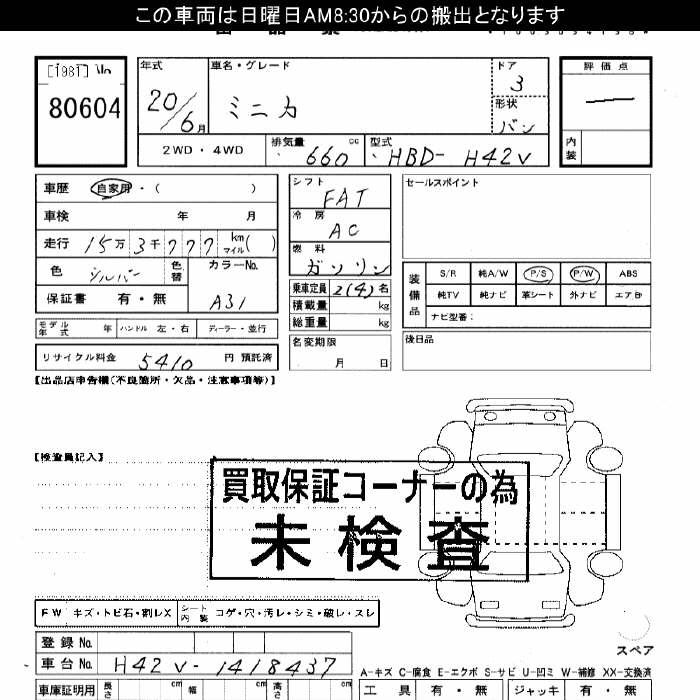 この車両は日曜日AM8:30からの搬出となります
[1981] No
80604
年式 車名・グレード ドア 評価点
20/6月 ミニカ 3
形状
バン
2WD・4WD 排気量 660 cc 型式 HBD- H42V 内装
車歴 自家用・( )
車検 年 月
走行 15万3千777 km マイル( )
色 シルバー 色替 カラーNo. A31
保証書 有・無
モデル年式 年 ハンドル 左・右 ディーラー・並行
リサイクル料金 5410 円 預託済
シフト FAT
冷房 AC
燃料 ガソリン
乗車定員 2(4)名
積載量 kg
総重量 kg
名変期限
月 日
セールスポイント
装備品 S/R 純A/W P/S P/W ABS
純TV 純ナビ 革シート 外ナビ エアB
ナビ型番:
後日品
【出品店申告欄(不良箇所・欠品・注意事項等)】
【検査員記入】
買取保証コーナーの為
未検査
FW キズ・トビ石・割レX シート内装 コゲ・穴・汚レ・シミ・破レ・スレ
登録No.
車台No. H42V-1418437
車庫証明用 長さ cm 幅 cm 高さ cm
スペア
A-キズ C-腐食 E-エクボ S-サビ U-凹ミ W-補修 XX-交換済
工具 有・無 ジャッキ 有・無